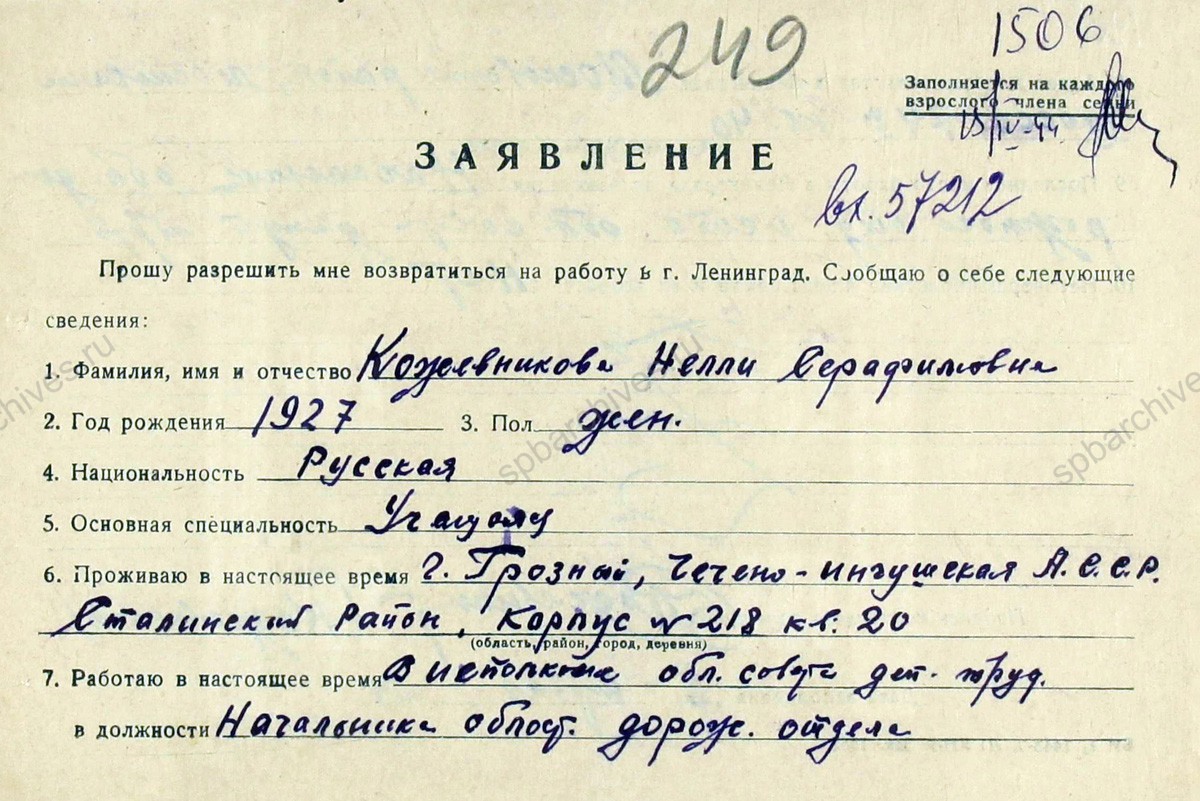 249
1506
Заполняется на каждого
взрослого члена семьи
вх. 57212
ЗАЯВЛЕНИЕ
Прошу разрешить мне возвратиться на работу в г. Ленинград. Сообщаю о себе следующие
сведения:
1. Фамилия, имя и отчество Кожевникова Нелли Серафимовна
2. Год рождения 1927 3. Пол жен.
4. Национальность Русская
5. Основная специальность
6. Проживаю в настоящее время г. Грозный, Чечено-ингушская А.С.С.Р.
Сталинский Район, Корпус № 218 кв. 20
(область, район, город, деревня)
7. Работаю в настоящее время В исполкоме обл. совета деп. труд.
в должности Начальника област. дорож. отдела
spbarchives.ru
spbarchives.ru
spbarchives.ru